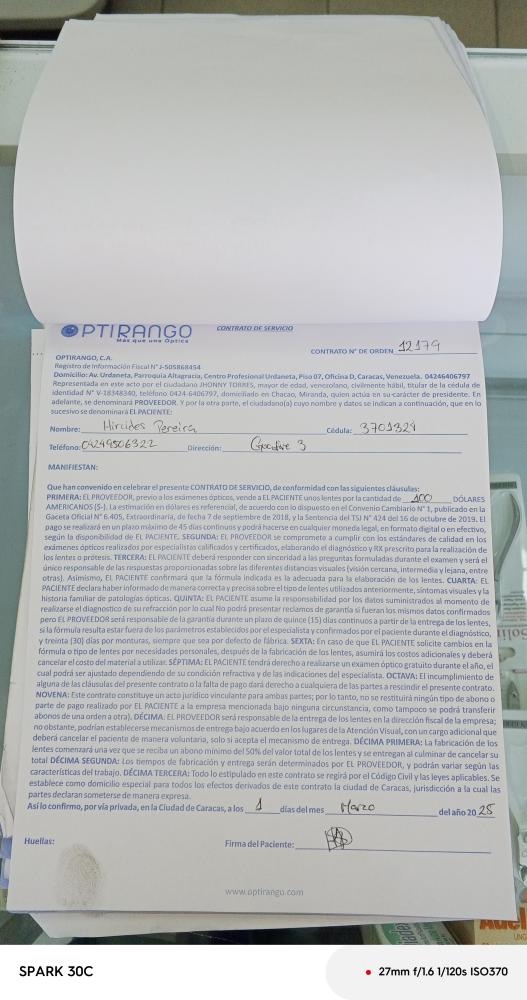 OPTIRANGO
Más que una Óptica
CONTRATO DE SERVICIO
CONTRATO N° DE ORDEN 12179
OPTIRANGO, C.A.
Registro de Información Fiscal N° J-505868454
Domicilio: Av. Urdaneta, Parroquia Altagracia, Centro Profesional Urdaneta, Piso 07, Oficina D, Caracas, Venezuela. 04246406797
Representada en este acto por el ciudadano JHONNY TORRES, mayor de edad, venezolano, civilmente hábil, titular de la cédula de
identidad N° V-18348340, teléfono 0424-6406797, domiciliado en Chacao, Miranda, quien actúa en su carácter de presidente. En
adelante, se denominará PROVEEDOR. Y por la otra parte, el ciudadano(a) cuyo nombre y datos se indican a continuación, que en lo
sucesivo se denominará EL PACIENTE:
Nombre: Hircides Pereira Cédula: 3701329
Teléfono: 04249506322 Dirección: 3
MANIFIESTAN:
Que han convenido en celebrar el presente CONTRATO DE SERVICIO, de conformidad con las siguientes cláusulas:
PRIMERA: EL PROVEEDOR, previo a los exámenes ópticos, vende a EL PACIENTE unos lentes por la cantidad de 100 DÓLARES
AMERICANOS ($-). La estimación en dólares es referencial, de acuerdo con lo dispuesto en el Convenio Cambiario N° 1, publicado en la
Gaceta Oficial N° 6.405, Extraordinaria, de fecha 7 de septiembre de 2018, y la Sentencia del TSJ N° 424 del 16 de octubre de 2019. El
pago se realizará en un plazo máximo de 45 días continuos y podrá hacerse en cualquier moneda legal, en formato digital o en efectivo,
según la disponibilidad de EL PACIENTE. SEGUNDA: EL PROVEEDOR se compromete a cumplir con los estándares de calidad en los
exámenes ópticos realizados por especialistas calificados y certificados, elaborando el diagnóstico y RX prescrito para la realización de
los lentes o prótesis. TERCERA: EL PACIENTE deberá responder con sinceridad a las preguntas formuladas durante el examen y será el
único responsable de las respuestas proporcionadas sobre las diferentes distancias visuales (visión cercana, intermedia y lejana, entre
otras). Asimismo, EL PACIENTE confirmará que la fórmula indicada es la adecuada para la elaboración de los lentes. CUARTA: EL
PACIENTE declara haber informado de manera correcta y precisa sobre el tipo de lentes utilizados anteriormente, síntomas visuales y la
historia familiar de patologías ópticas. QUINTA: EL PACIENTE asume la responsabilidad por los datos suministrados al momento de
realizarse el diagnostico de su refracción por lo cual No podrá presentar reclamos de garantía si fueran los mismos datos confirmados
pero EL PROVEEDOR será responsable de la garantía durante un plazo de quince (15) días continuos a partir de la entrega de los lentes,
si la fórmula resulta estar fuera de los parámetros establecidos por el especialista y confirmados por el paciente durante el diagnóstico,
y treinta (30) días por monturas, siempre que sea por defecto de fábrica. SEXTA: En caso de que EL PACIENTE solicite cambios en la
fórmula o tipo de lentes por necesidades personales, después de la fabricación de los lentes, asumirá los costos adicionales y deberá
cancelar el costo del material a utilizar. SÉPTIMA: EL PACIENTE tendrá derecho a realizarse un examen óptico gratuito durante el año, el
cual podrá ser ajustado dependiendo de su condición refractiva y de las indicaciones del especialista. OCTAVA: El incumplimiento de
alguna de las cláusulas del presente contrato o la falta de pago dará derecho a cualquiera de las partes a rescindir el presente contrato.
NOVENA: Este contrato constituye un acto jurídico vinculante para ambas partes; por lo tanto, no se restituirá ningún tipo de abono o
parte de pago realizado por EL PACIENTE a la empresa mencionada bajo ninguna circunstancia, como tampoco se podrá transferir
abonos de una orden a otra). DÉCIMA: EL PROVEEDOR será responsable de la entrega de los lentes en la dirección fiscal de la empresa;
no obstante, podrían establecerse mecanismos de entrega bajo acuerdo en los lugares de Atención Visual, con un cargo adicional que
deberá cancelar el paciente de manera voluntaria, solo si acepta el mecanismo de entrega. DÉCIMA PRIMERA: La fabricación de los
lentes comenzará una vez que se reciba un abono mínimo del 50% del valor total de los lentes y se entregan al culminar de cancelar su
total DÉCIMA SEGUNDA: Los tiempos de fabricación y entrega serán determinados por EL PROVEEDOR, y podrán variar según las
características del trabajo. DÉCIMA TERCERA: Todo lo estipulado en este contrato se regirá por el Código Civil y las leyes aplicables. Se
establece como domicilio especial para todos los efectos derivados de este contrato la ciudad de Caracas, jurisdicción a la cual las
partes declaran someterse de manera expresa.
Así lo confirmo, por vía privada, en la Ciudad de Caracas, a los 1 días del mes Marzo del año 2025
Huellas: Firma del Paciente:
www.optirango.com
SPARK 30C
27mm f/1.6 1/120s ISO370